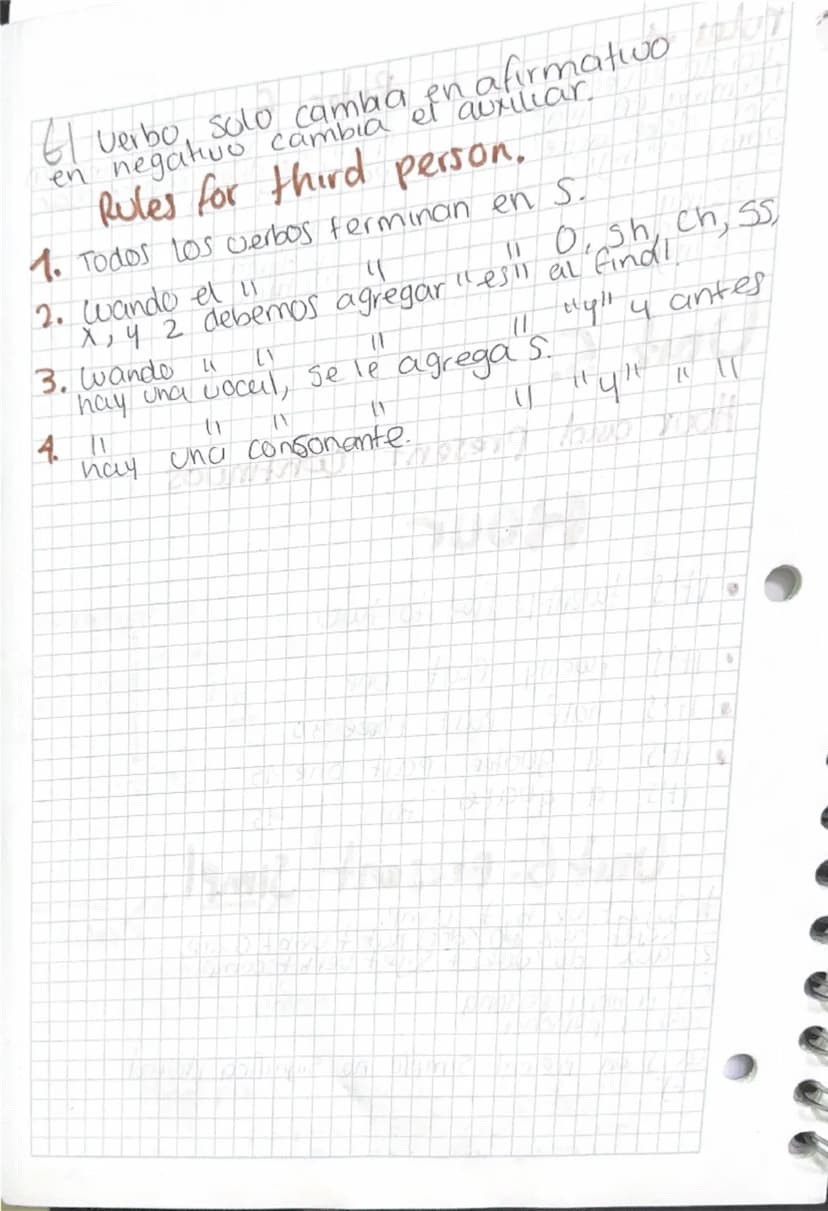 El verbo solo cambia en afirmativo
en negativo cambia el auxiliar.
Rules for third person.
1. Todos los verbos terminan en s.
2. Cuando el " " " O, sh, ch, ss,
x, y z debemos agregar "es" al final.
3. Cuando " " " " "y" y antes
hay una vocal, se le agrega s.
4. " " " " " "y" " "
hay una consonante.